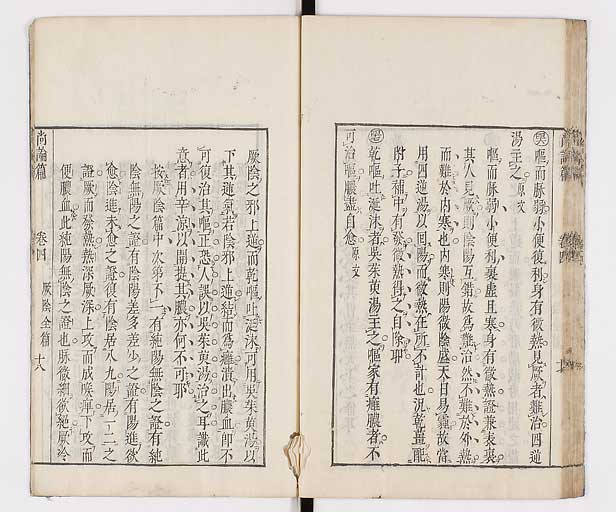 嘔而脉弱小便復利身有微熱見厥者難治四逆
湯主之原文
嘔而脉弱小便利裏虛且寒身有微熱證兼表裏
其人見厥則陰陽互錯故為難治然不難於外熱
而難於內寒也內寒則陽微陰盛天日易霾故當
用四逆湯以回陽而微熱在所不計也況乾薑配
附子補中有發微熱得之自除耶
乾嘔吐涎沫者吳茱萸湯主之嘔家有癰膿者不
可治嘔膿盡自愈原文
厥陰之邪上逆而乾嘔吐涎沫可用吳茱萸湯以
下其逆氣若陰邪上逆結而為癰潰出膿血即不
可復治其嘔正恐人誤以吳茱萸湯治之耳識此
意者用辛涼以開提其膿亦何不可耶
按厥陰篇中次第不一有純陽無陰之證有純
陰無陽之證有陰陽差多差少之證有陽進欲
愈陰進未愈之證復有陰居八九陽居一二之
證厥而發熱熱深厥深上攻而成喉痹下攻而
便膿血此純陽無陰之證也脉微細欲絕厥冷
尚論篇 卷四 厥陰全篇 十八